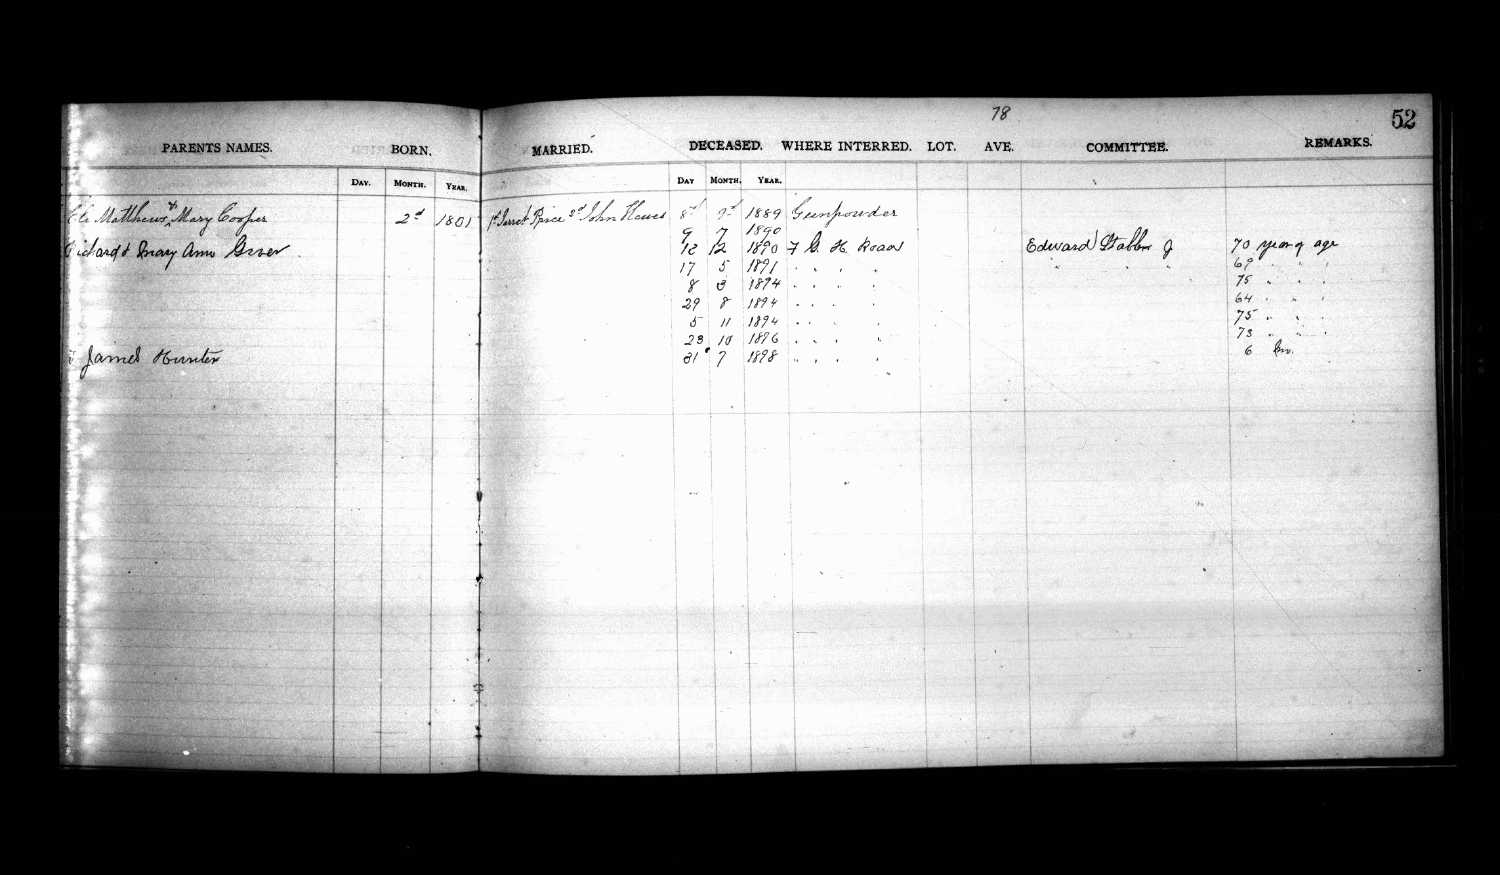 78
52
PARENTS NAMES. BORN. MARRIED. DECEASED. WHERE INTERRED. LOT. AVE. COMMITTEE. REMARKS.
DAY. MONTH. YEAR. DAY MONTH. YEAR.
Eli Matthews & Mary Cooper 2d 1801 1st Jarret Price 2d John Hewes 8th 9th 1889 Gunpowder
9 7 1890
Richard & Mary Ann Grover 12 12 1890 F G. H. Road Edward Stabler J 70 years of age
17 5 1891 " " " " " " " 69 " " "
8 3 1894 " " " " 75 " " "
29 8 1894 " " " " 64 " " "
5 11 1894 " " " " 75 " " "
23 10 1896 " " " " 73 " " "
James Hunter 31 7 1898 " " " " 6 mo.